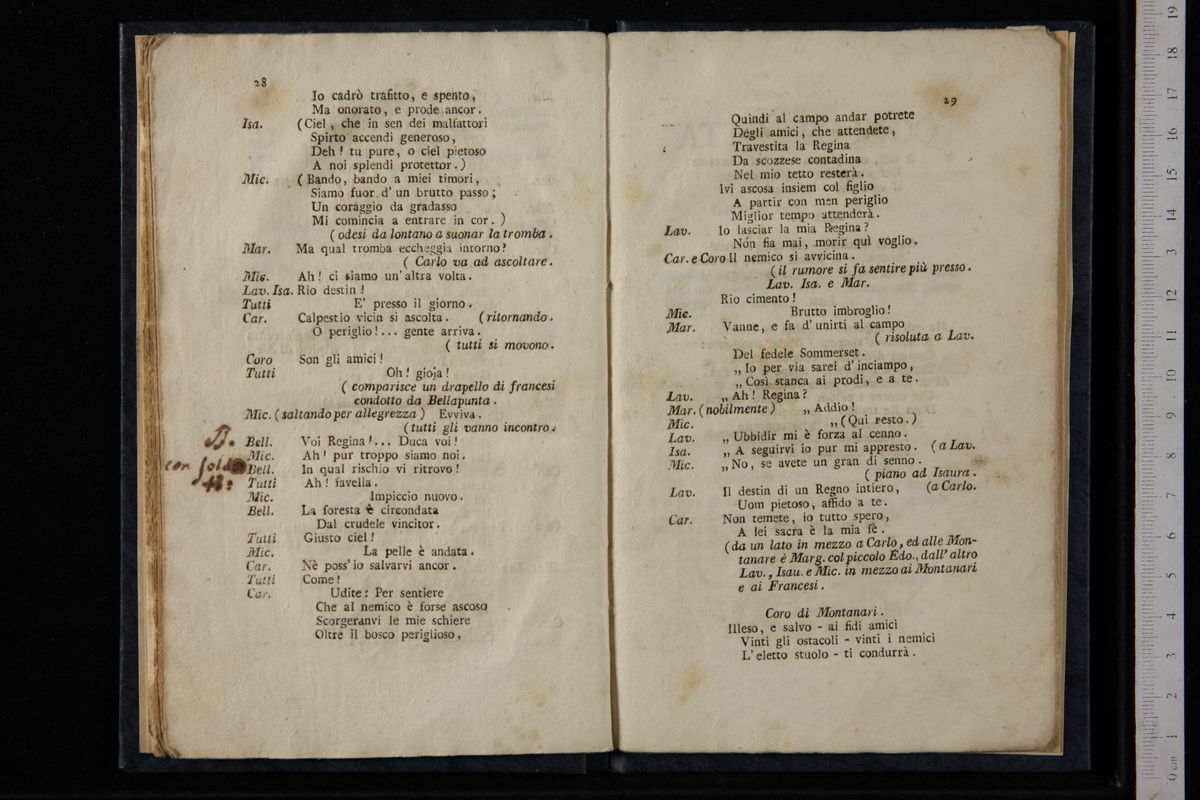 28
Io cadrò trafitto, e spento,
Ma onorato, e prode ancor.
Isa. (Ciel, che in sen dei malfattori
Spirto accendi generoso,
Deh! tu pure, o ciel pietoso
A noi splendi protettor.)
Mic. (Bando, bando a miei timori,
Siamo fuor d'un brutto passo;
Un coraggio da gradasso
Mi comincia a entrare in cor.)
(odesi da lontano a suonar la tromba.
Mar. Ma qual tromba eccheggia intorno?
(Carlo va ad ascoltare.
Mic. Ah! ci siamo un'altra volta.
Lav. Isa. Rio destin!
Tutti E' presso il giorno.
Car. Calpestio vicin si ascolta. (ritornando.
O periglio!... gente arriva.
(tutti si movono.
Coro Son gli amici!
Tutti Oh! gioja!
(comparisce un drapello di francesi
condotto da Bellapunta.
Mic. (saltando per allegrezza) Evviva.
(tutti gli vanno incontro.
B. Bell. Voi Regina!... Duca voi!
Mic. Ah! pur troppo siamo noi.
con Bell. In qual rischio vi ritrovo!
Tutti Ah! favella.
Mic. Impiccio nuovo.
Bell. La foresta è circondata
Dal crudele vincitor.
Tutti Giusto ciel!
Mic. La pelle è andata.
Car. Nè poss'io salvarvi ancor.
Tutti Come!
Car. Udite: Per sentiere
Che al nemico è forse ascoso
Scorgeranvi le mie schiere
Oltre il bosco periglioso,
29
Quindi al campo andar potrete
Degli amici, che attendete,
Travestita la Regina
Da scozzese contadina
Nel mio tetto resterà.
Ivi ascosa insiem col figlio
A partir con men periglio
Miglior tempo attenderà.
Lav. Io lasciar la mia Regina?
Non fia mai, morir quì voglio.
Car. e Coro Il nemico si avvicina.
(il rumore si fa sentire più presso.
Lav. Isa. e Mar.
Rio cimento!
Mic. Brutto imbroglio!
Mar. Vanne, e fa d'unirti al campo
(risoluta a Lav.
Del fedele Sommerset.
„Io per via sarei d'inciampo,
„Così stanca ai prodi, e a te.
Lav. „Ah! Regina?
Mar. (nobilmente) „Addio!
Mic. „(Qui resto.)
Lav. „Ubbidir mi è forza al cenno.
Isa. „A seguirvi io pur mi appresto. (a Lav.
Mic. „No, se avete un gran di senno.
(piano ad Isaura.
Lav. Il destin di un Regno intiero, (a Carlo.
Uom pietoso, affido a te.
Car. Non temete, io tutto spero,
A lei sacra è la mia fè.
(da un lato in mezzo a Carlo, ed alle Mon-
tanare è Marg. col piccolo Edo., dall'altro
Lav., Isau. e Mic. in mezzo ai Montanari
e ai Francesi.
Coro di Montanari.
Illeso, e salvo - ai fidi amici
Vinti gli ostacoli - vinti i nemici
L'eletto stuolo - ti condurrà.
0 cm 1 2 3 4 5 6 7 8 9 10 11 12 13 14 15 16 17 18 19